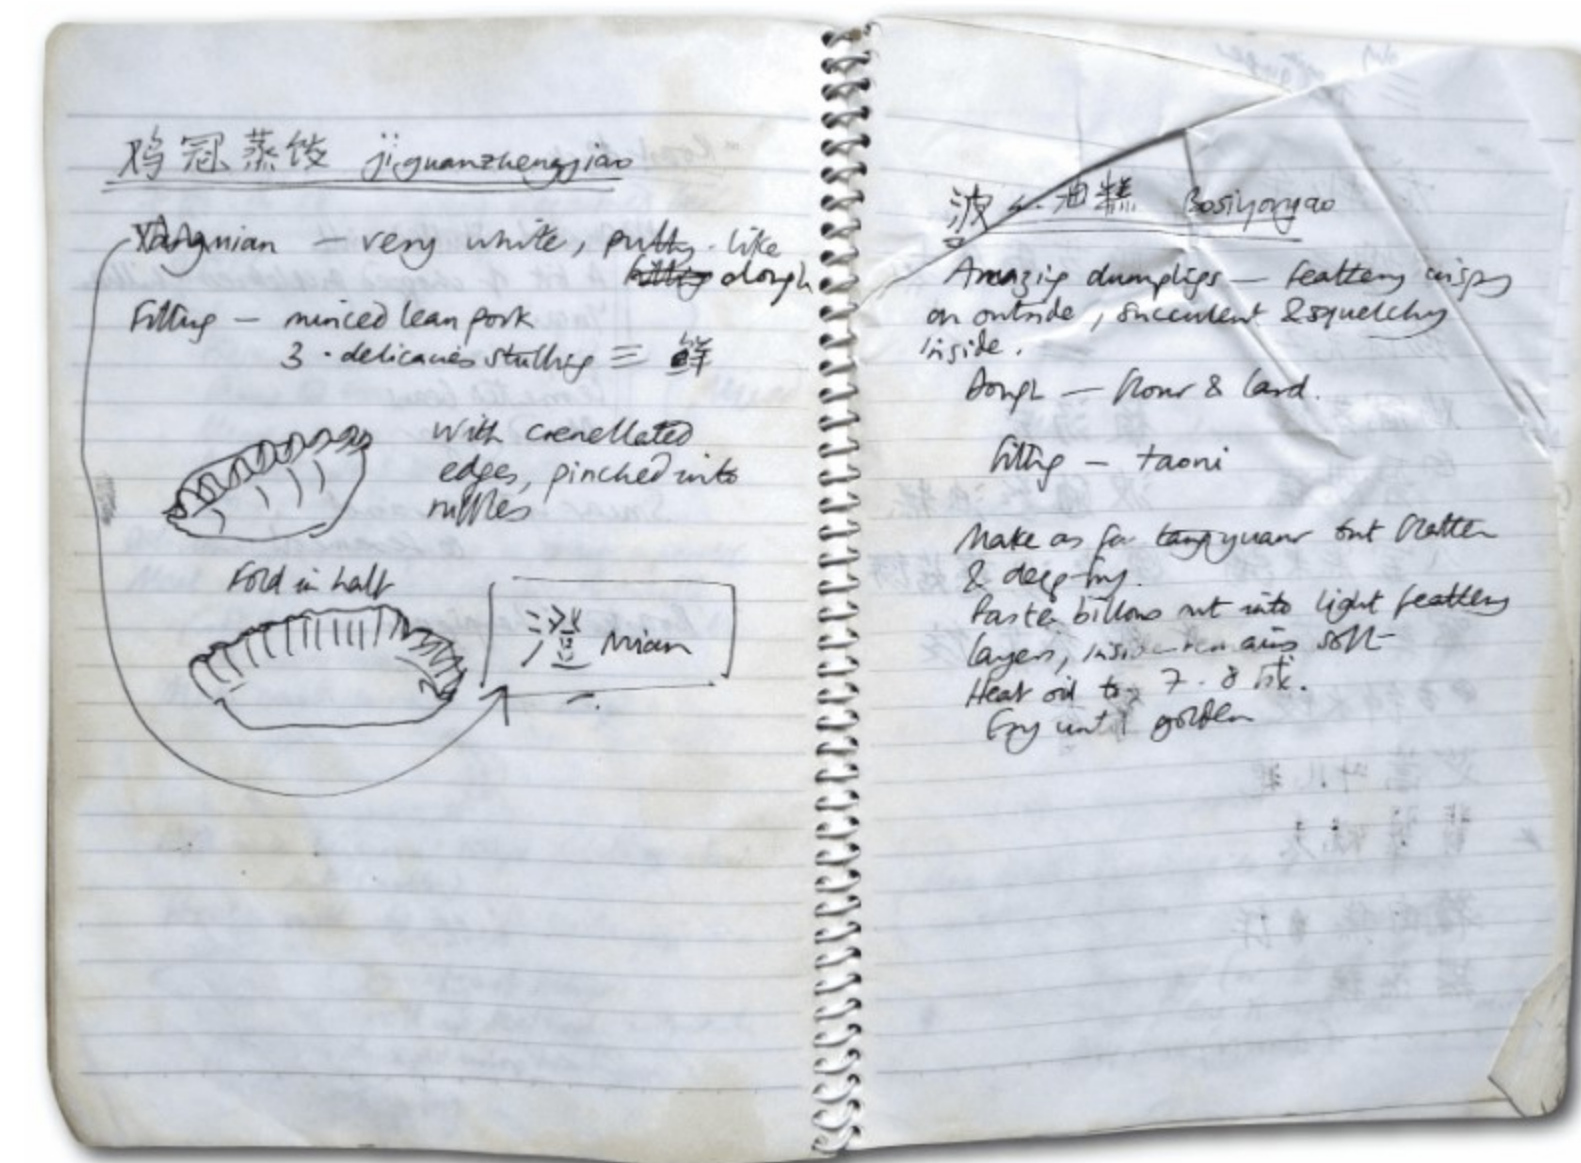 鸡冠蒸饺 jiguanzhengjiao
– very white, putty-like
dough
filling – minced lean pork
3-delicacies stuffing 三鲜
With crenellated
edges, pinched into
ruffles
Fold in half
澄 mian
波 油糕 Bosiyougao
Amazing dumplings – feathery crispy
on outside, succulent & squelchy
inside.
Dough – flour & lard.
filling – taoni
Make as for tangyuanr but flatten
& deep-fry.
Paste billows out into light feathery
layers, inside remains soft
Heat oil to 7-8 成.
Fry until golden